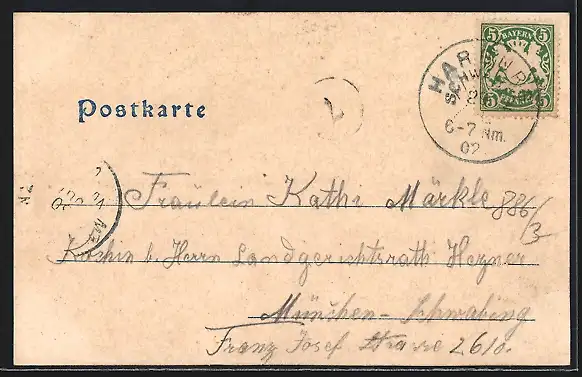 BAYERN
5 5
HAR
SCHW
6-7 Nm.
02
Postkarte
Fräulein Kathi Märkle
886/3
Köchin b. Herrn Landgerichtsrath Hezner
München-Schwabing
Franz Josef Strasse 26